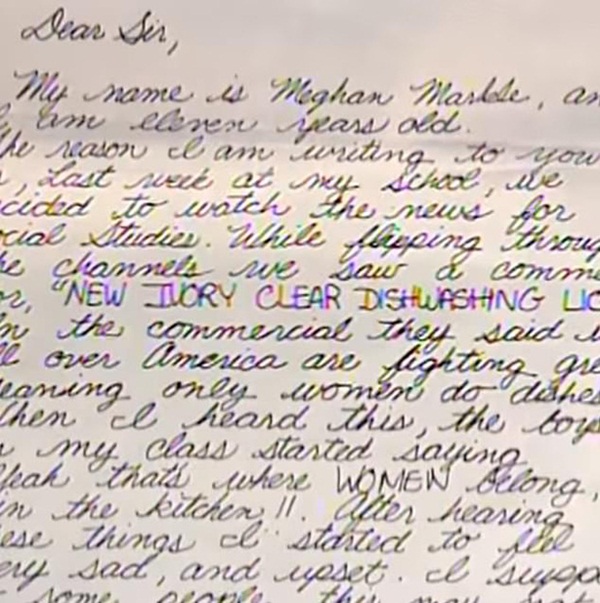 Dear Sir,
My name is Meghan Markle, an
I am eleven years old.
he reason I am writing to you
s, Last week at my school, we
cided to watch the news for
ocial Studies. While flipping throug
he channels we saw a comme
or, "NEW IVORY CLEAR DISHWASHING LIQ
In the commercial they said w
ll over America are fighting gre
eaning only women do dishes
When I heard this, the boys
n my class started saying
Yeah thats where WOMEN belong,
in the kitchen!!. After hearing
ese things I started to feel
ery sad, and upset. I suppo
some people this may not